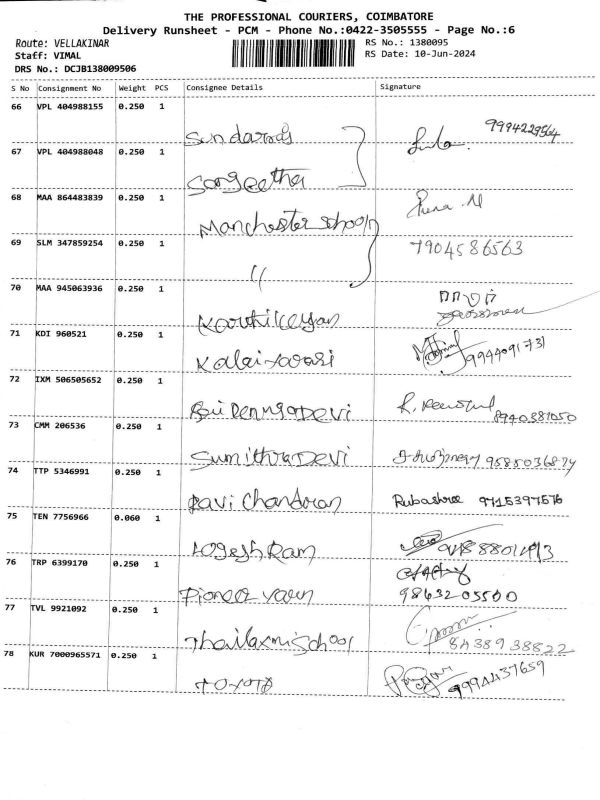 THE PROFESSIONAL COURIERS, COIMBATORE
Delivery Runsheet - PCM - Phone No.:0422-3505555 - Page No.:6
Route: VELLAKINAR RS No.: 1380095
Staff: VIMAL RS Date: 10-Jun-2024
DRS No.: DCJB138009506
S No Consignment No Weight PCS Consignee Details Signature
66 VPL 404988155 0.250 1
Sundarraj 9994229564
67 VPL 404988048 0.250 1
Sangeetha
68 MAA 864483839 0.250 1
Manchester school
69 SLM 347859254 0.250 1 7904586563
"
70 MAA 945063936 0.250 1
Karthikeyan
71 KDI 960521 0.250 1
Kalaiyarasi 9994091731
72 IXM 506505652 0.250 1
Devi 8940381050
73 CMM 206536 0.250 1
Sumithra Devi 9585036874
74 TTP 5346991 0.250 1
Ravi Chandran Rubashree 9715397576
75 TEN 7756966 0.060 1
LogeshRam
76 TRP 6399170 0.250 1
Pioneer yarn 9863205500
77 TVL 9921092 0.250 1
Thailaxmi School 8438938822
78 KUR 7000965571 0.250 1
TOYOTA 9994437659